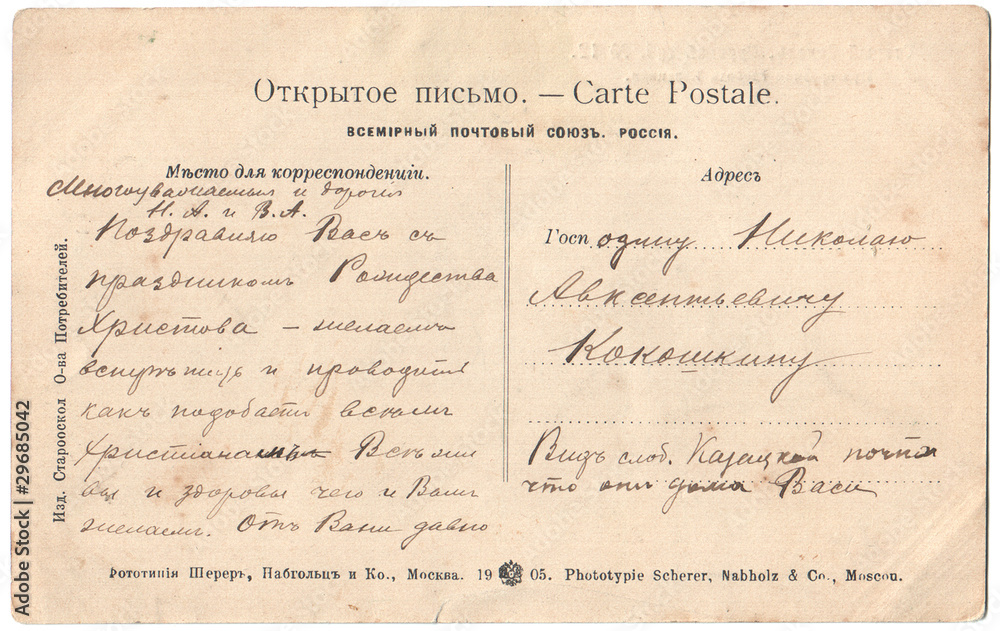 Открытое письмо. — Carte Postale.
ВСЕМІРНЫЙ ПОЧТОВЫЙ СОЮЗЪ. РОССІЯ.
Мѣсто для корреспонденціи.
Многоуважаемыя и дорогія
Н. А. и В. А.
Поздравляю Васъ съ
праздникомъ Рождества
Христова – желаемъ
и проводить
какъ подобаетъ всѣмъ
Христіанамъ Всѣ мы
и здоровы чего и Вамъ
желаемъ. Отъ Вани давно
Изд. Старооскол О-ва Потребителей.
Адресъ
Господину Николаю
Авксентьевичу
Кокошкину
Видъ слоб. Казацкой почти
что дома Васи
Фототипія Шереръ, Набгольцъ и Ко., Москва. 1905. Phototypie Scherer, Nabholz & Co., Moscou.
Adobe Stock | #29685042